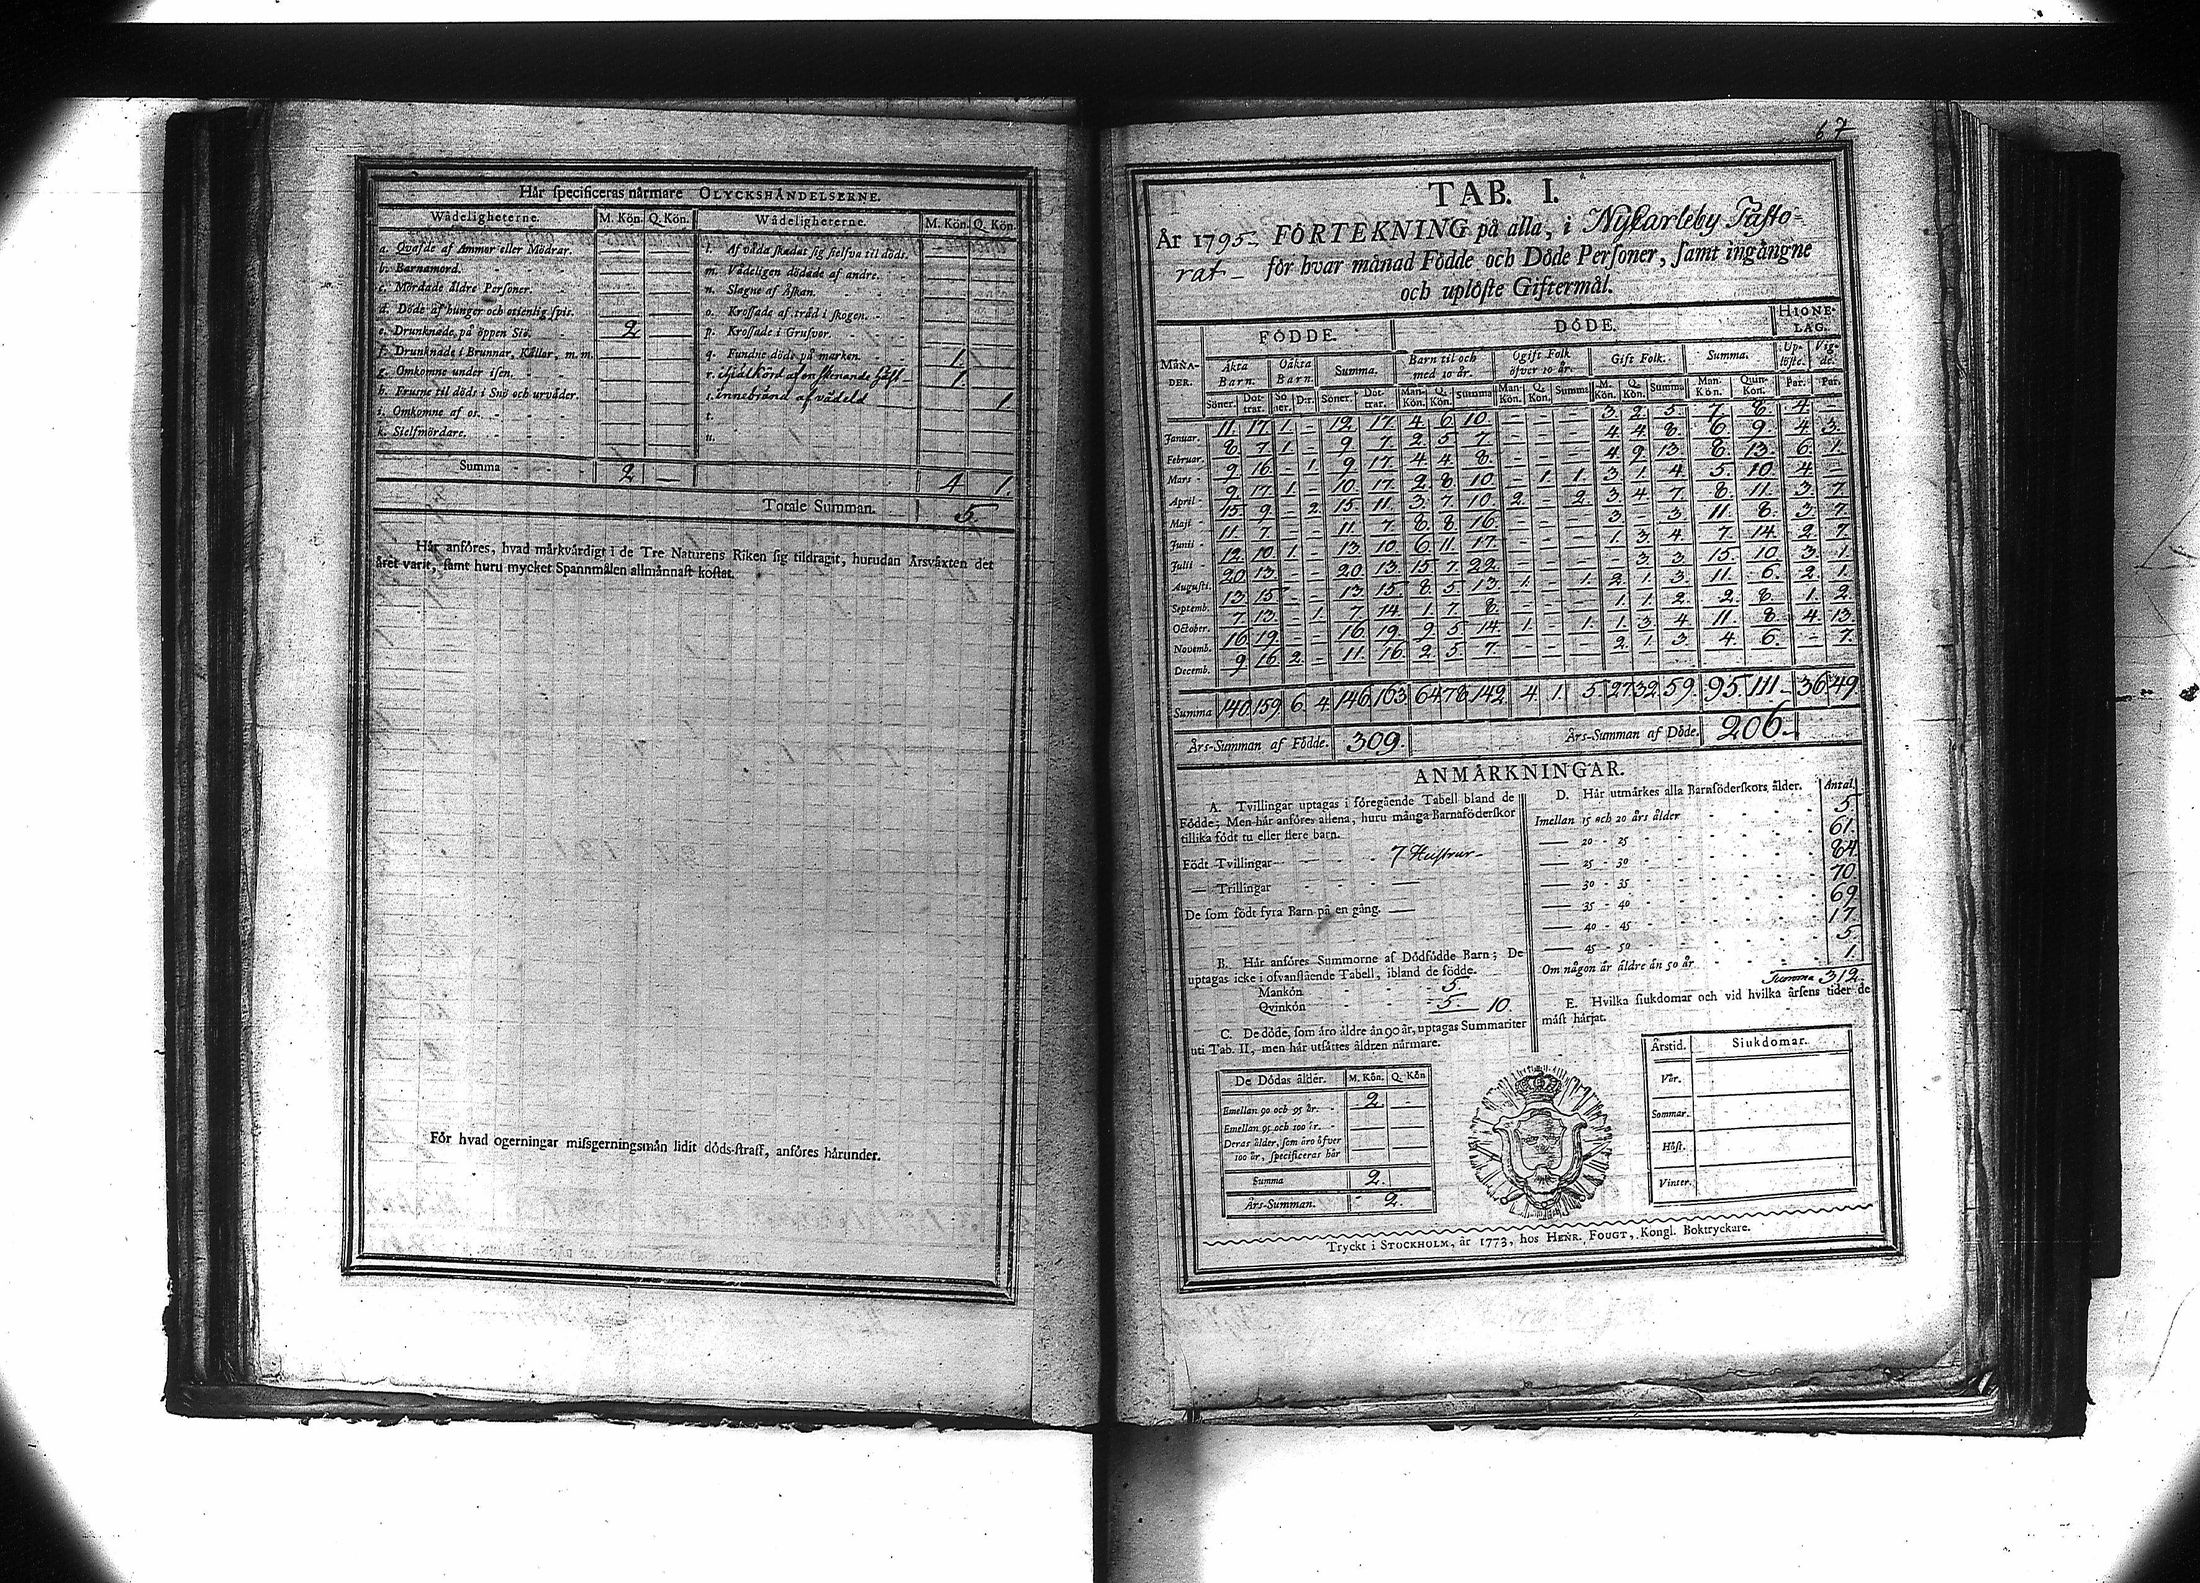 Här specificeras närmare OLYCKSHÄNDELSERNE.
Wådeligheterne. M. Kön. Q. Kön. Wådeligheterne. M. Kön. Q. Kön.
a. Qvafde af Ammor eller Mödrar. — — l. Af våda skadat sig sielfva til döds. — —
b. Barnamord. — — m. Vådeligen dödade af andre. — —
c. Mördade äldre Personer. — — n. Slagne af Åskan. — —
d. Döde af hunger och otienlig spis. — — o. Krossade af träd i skogen. — —
e. Drunknade på öppen Siö. 2 — p. Krossade i Grufvor. — —
f. Drunknade i Brunnar, Källor, m. m. — — q. Fundne döde på marken. 1. —
g. Omkomne under isen. — — r. ihjälkörd af en skenande häst 1. —
h. Frusne til döds i Snö och urväder. — — s. innebränd af vådeld — 1.
i. Omkomne af os. — — t.
k. Sielfmördare. — — u.
Summa 2 — 4 1.
Totale Summan. 5.
Här anföres, hvad märkvärdigt i de Tre Naturens Riken sig tildragit, hurudan Årsväxten det
året varit, samt huru mycket Spannmålen allmännast kostat.
För hvad ogerningar missgerningsmän lidit döds-straff, anföres härunder.
67
TAB. I.
År 1795 FÖRTEKNING på alla, i Nykarleby Pasto-
rat för hvar månad Födde och Döde Personer, samt ingångne
och uplöste Giftermål.
MÅNA-DER. FÖDDE. DÖDE. HIONE-LAG.
Äkta Barn. Oäkta Barn. Summa. Barn til och med 10 år. Ogift Folk öfver 10 år. Gift Folk. Summa. Up-löste. Vig-de.
Söner. Döt-trar. Sö-ner. D:r. Söner. Döt-trar. Man-Kön. Q. Kön. Summa Man-Kön. Q. Kön. Summa M. Kön. Q. Kön. Summa Man-Kön. Quin-Kön. Par. Par.
Januar. 11. 17. 1. - 12. 17. 4. 6. 10. - - - 3. 2. 5. 7. 8. 4. -
Februar. 8. 7. 1. - 9. 7. 2. 5. 7. - - - 4. 4. 8. 6. 9. 4. 3.
Mars 9. 16. - 1. 9. 17. 4. 4. 8. - - - 4. 9. 13. 8. 13. 6. 1.
April 9. 17. 1. - 10. 17. 2. 8. 10. - 1. 1. 3. 1. 4. 5. 10. 4. -
Maji 15. 9. - 2. 15. 11. 3. 7. 10. 2. - 2. 3. 4. 7. 8. 11. 3. 7.
Junii 11. 7. - - 11. 7. 8. 8. 16. - - - 3. - 3. 11. 8. 3. 7.
Julii 12. 10. 1. - 13. 10. 6. 11. 17. - - - 1. 3. 4. 7. 14. 2. 7.
Augusti. 20. 13. - - 20. 13. 15. 7. 22. - - - - 3. 3. 15. 10. 3. 1.
Septemb. 13. 15. - - 13. 15. 8. 5. 13. 1. - 1. 2. 1. 3. 11. 6. 2. 1.
October. 7. 13. - 1. 7. 14. 1. 7. 8. - - - 1. 1. 2. 2. 8. 1. 2.
Novemb. 16. 19. - - 16. 19. 9. 5. 14. 1. - 1. 1. 3. 4. 11. 8. 4. 13.
Decemb. 9. 16. 2. - 11. 16. 2. 5. 7. - - - 2. 1. 3. 4. 6. - 7.
Summa 140 159 6. 4. 146. 163. 64 78. 142. 4. 1. 5. 27. 32. 59. 95. 111. 36. 49.
Års-Summan af Födde. 309. Års-Summan af Döde. 206.
ANMÄRKNINGAR.
A. Tvillingar uptagas i föregående Tabell bland de
Födde; Men här anföres allena, huru många Barnaföderskor
tillika födt tu eller flere barn.
Födt Tvillingar 7. Hustrur
— Trillingar —
De som födt fyra Barn på en gång. —
B. Här anföres Summorne af Dödfödde Barn; De
uptagas icke i ofvanstående Tabell, ibland de födde.
Mankön 5.
Qvinkön 5. 10.
C. De döde, som äro äldre än 90 år, uptagas Summariter
uti Tab. II, men här utsättes åldren närmare.
De Dödas ålder. M. Kön. Q. Kön
Emellan 90 och 95 år. 2. -
Emellan 95 och 100 år. — —
Deras ålder, som äro öfver
100 år, specificeras här — —
Summa 2.
Års-Summan. 2.
D. Här utmärkes alla Barnföderskors ålder. Antal.
Imellan 15 och 20 års ålder 5
— 20 - 25 61.
— 25 - 30 84.
— 30 - 35 70.
— 35 - 40 69.
— 40 - 45 17.
— 45 - 50 5.
Om någon är äldre än 50 år 1.
Summa 312.
E. Hvilka siukdomar och vid hvilka årsens tider de
mäst härjat.
Årstid. Siukdomar.
Vår.
Sommar.
Höst.
Vinter.
Tryckt i STOCKHOLM, år 1773, hos HENR. FOUGT, Kongl. Boktryckare.